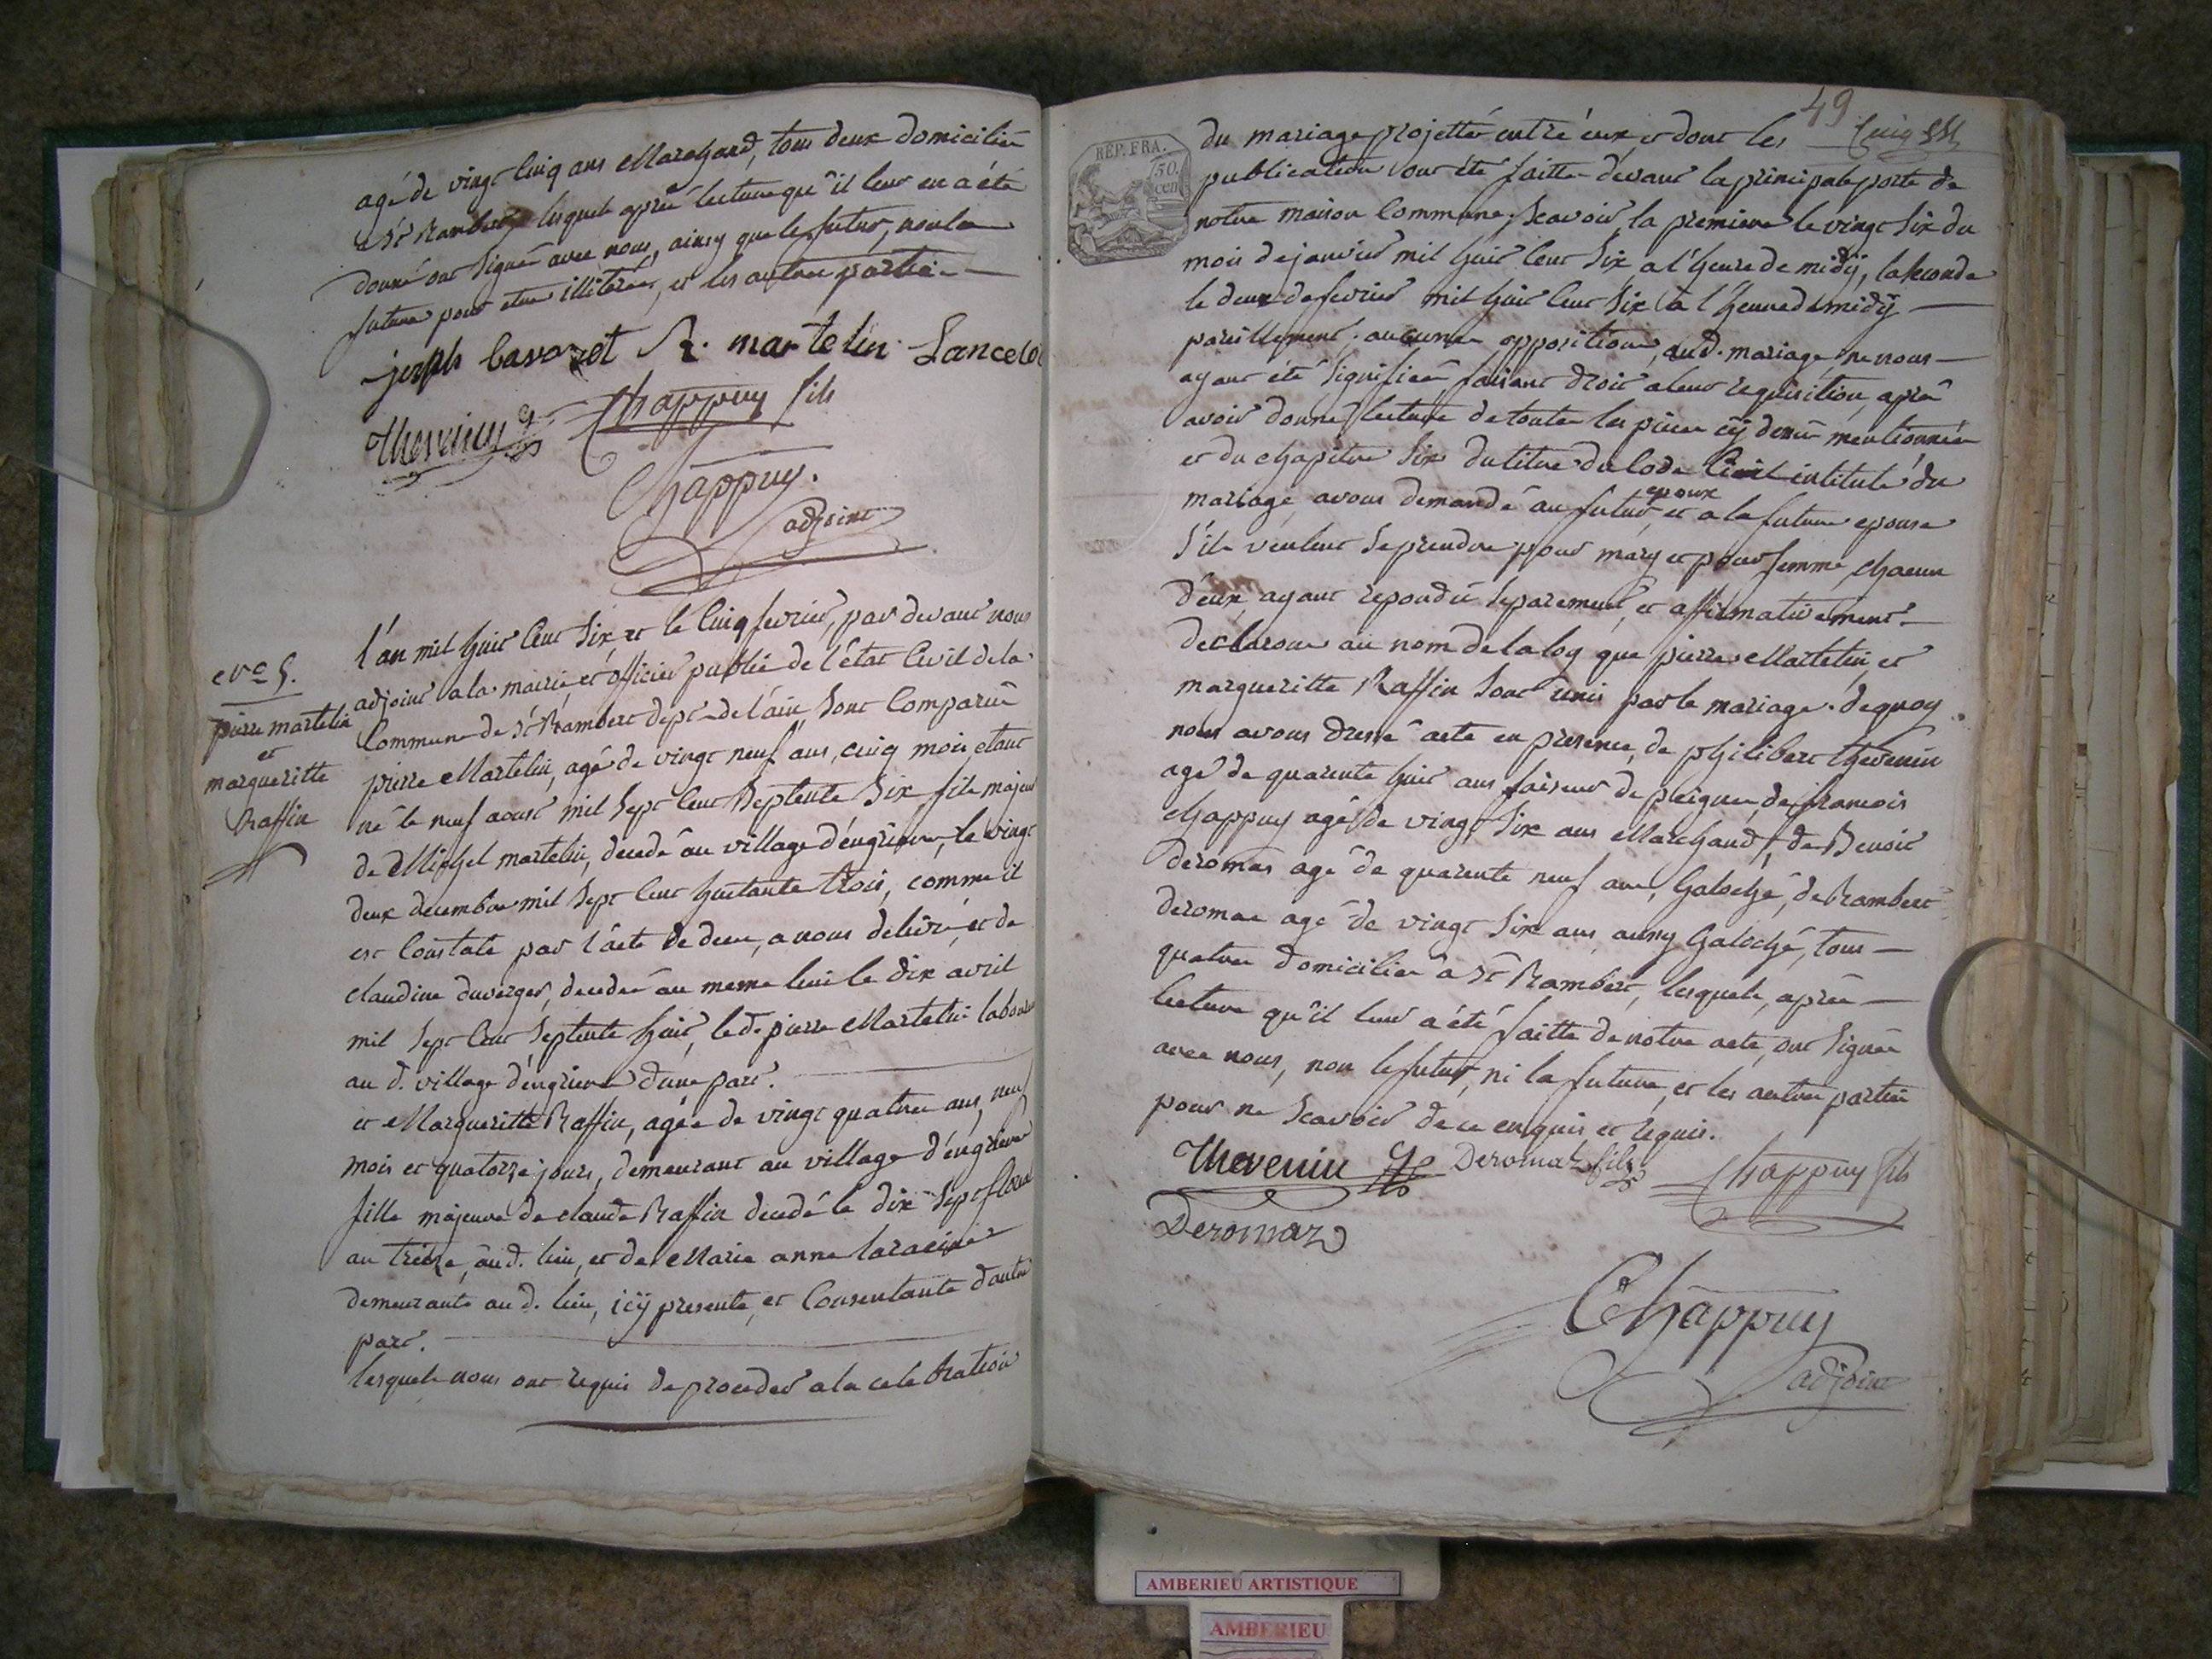 agé de vingt cinq ans Marchand, tous deux domicilies
a St Rambert lesquels après lecture qu'il leur en a été
donné ont signé avec nous, ainsy que le futur, non la
future pour etre illitérée, et les autres parties
joseph Savarot martelin Lancelot
Thevenin Chappuy fils
Chappuy.
adjoint
No 5.
pierre martelin
et
margueritte
Raffin
l'an mil huit cent six, et le cinq fevrier, par devant nous
adjoint a la mairie et officier public de l'état civil de la
Commune de St Rambert dept de l'ain, sont comparus
pierre Martelin, agé de vingt neuf ans, cinq mois, etant
né le neuf aoust mil sept cent septente six fils majeur
de Michel martelin, decedé au village d'éngrieve, le vingt
deux decembre mil sept cent huitante trois, comme il
est constaté par l'acte de deces, a nous delivré, et de
claudine duverger, decedée au meme lieu le dix avril
mil sept cent septente huit, le d. pierre Martelin laboureur
au d. village d'éngrieve d'une part.
et Margueritte Raffin, agée de vingt quatre ans, neuf
mois et quatorze jours, demeurant au village d'éngrieve
fille majeure de claude Raffin decedé le dix sept floréal
an treize, aud. lieu, et de Marie anne laracine
demeurante aud. lieu, icÿ presente, et consentante d'autre
part.
lesquels nous ont requis de proceder a la celebration
49
REP. FRA.
50.
cen.
du mariage projetté entré eux, et dont les
publications ont été faittes devant la principale porte de
notre maison commune; scavoir, la premiere le vingt six du
mois de janvier mil huit cent six a l'heure de midÿ, la seconde
le deux de fevrier mil huit cent six a l'heure de midÿ
pareillement. aucunes oppositions, aud. mariage, ne nous
ayant été signifiées faisant droit a leur requisition, après
avoir donné lecture de toutes les pieces cÿ dessus mentionnées
et du chapitre six du titre du Code Civil intitulé du
mariage, avons demandé au futur epoux, et a la future epouse
s'ils veulent se prendre pour mary et pour femme, chacun
d'eux ayant repondu separement, et affirmativement
declarons au nom de la loy que pierre Martelin, et
margueritte Raffin sont unis par le mariage. de quoy
nous avons dressé acte en presence, de philibert thevenin
agé de quarente huit ans faiseur de peignes, de francois
chappuy agé de vingt six ans Marchand, de Benoit
deromas agé de quarente neuf ans, Galoché, de Rambert
deromas agé de vingt six ans, aussy Galoché, tous
quatres domiciliés a St Rambert, lesquels, après
lecture qu'il leur a été faitte de notre acte, ont signés
avec nous, non le futur, ni la future, et les autres parties
pour ne scavoir de ce enquis et requis.
Thevenin Deromaz fils Chappuy fils
Deromaz
Chappuy
adjoint
AMBERIEU ARTISTIQUE
AMBERIEU